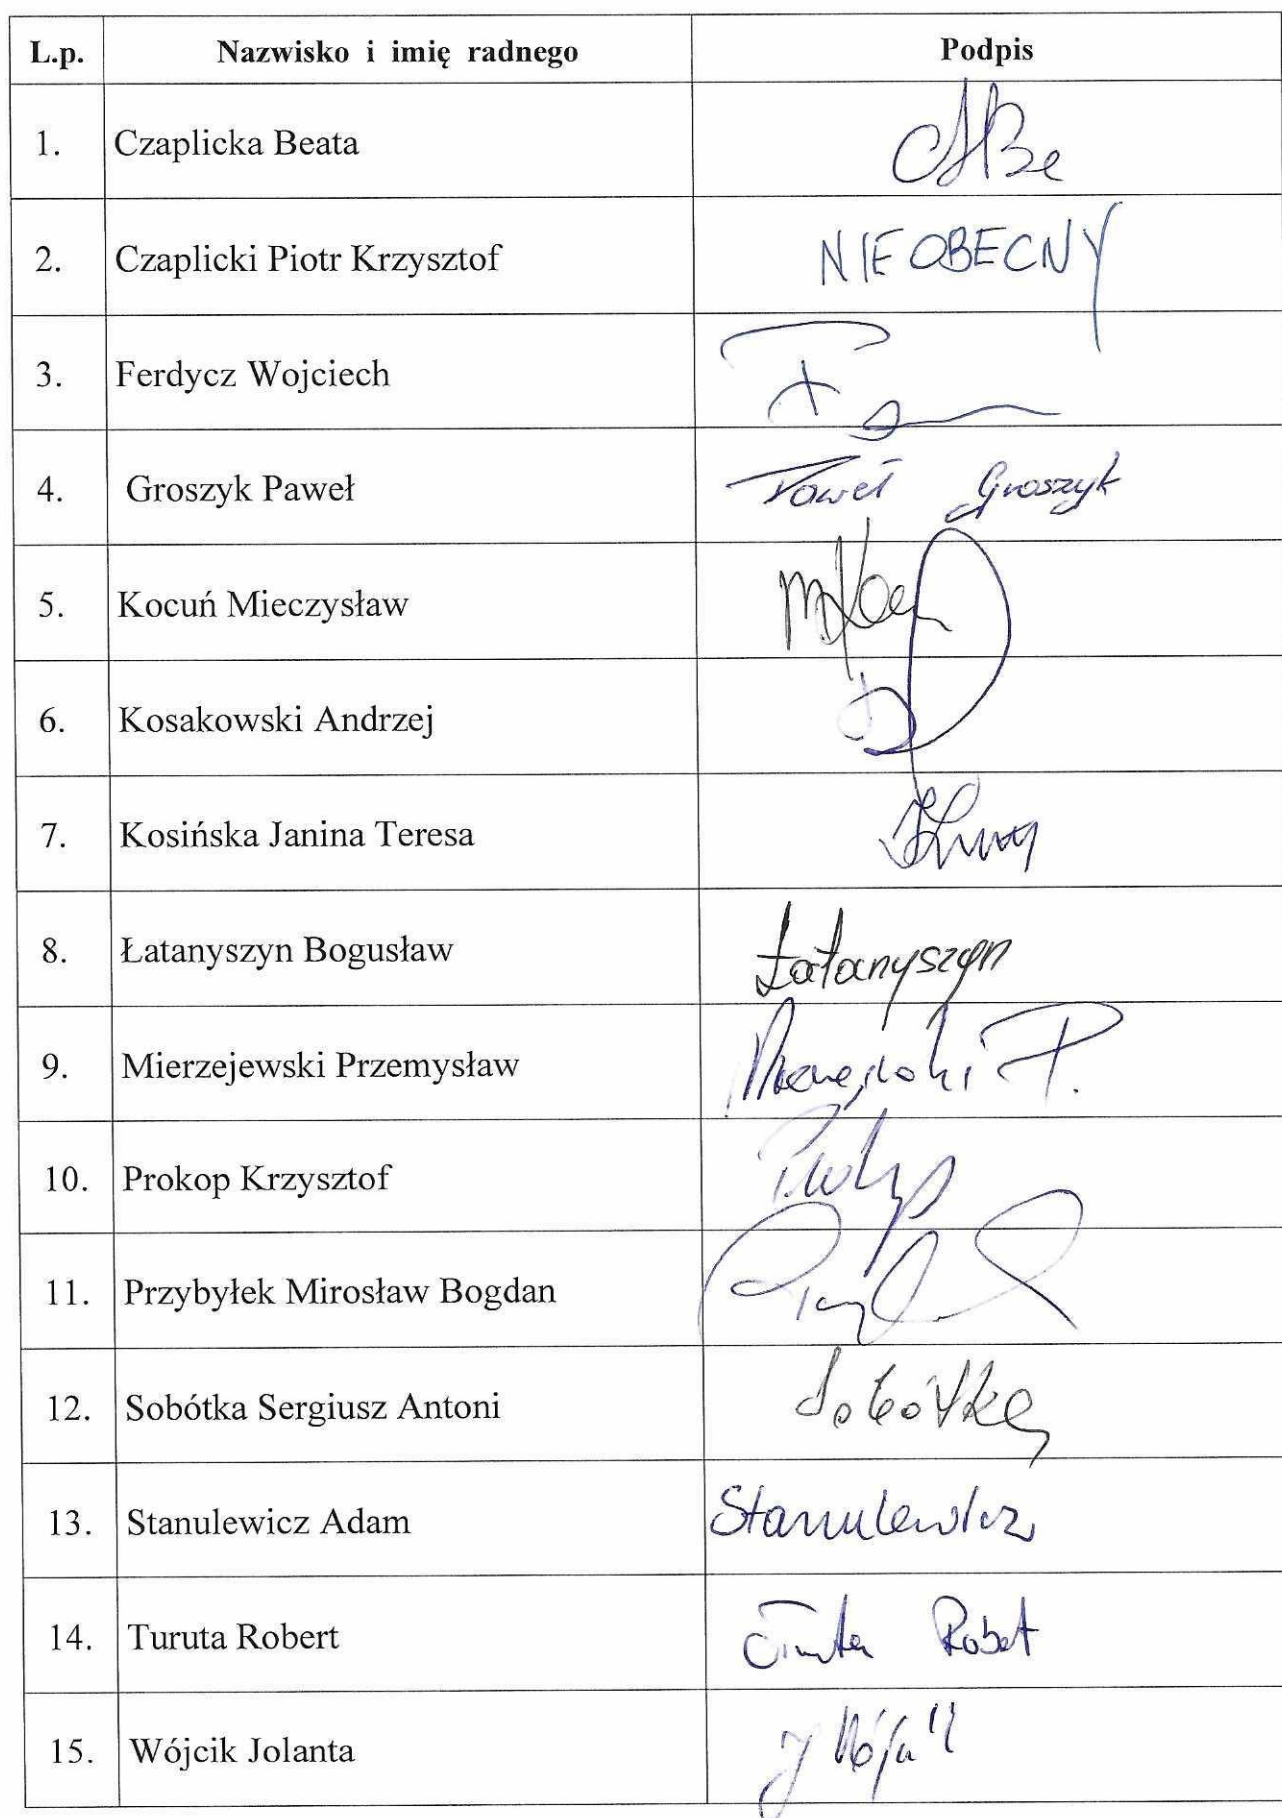 L.p. Nazwisko i imię radnego Podpis
1. Czaplicka Beata
2. Czaplicki Piotr Krzysztof NIEOBECNY
3. Ferdycz Wojciech
4. Groszyk Paweł Paweł Groszyk
5. Kocuń Mieczysław
6. Kosakowski Andrzej
7. Kosińska Janina Teresa
8. Łatanyszyn Bogusław Łatanyszyn
9. Mierzejewski Przemysław
10. Prokop Krzysztof
11. Przybyłek Mirosław Bogdan
12. Sobótka Sergiusz Antoni Sobótka
13. Stanulewicz Adam Stanulewicz
14. Turuta Robert
15. Wójcik Jolanta